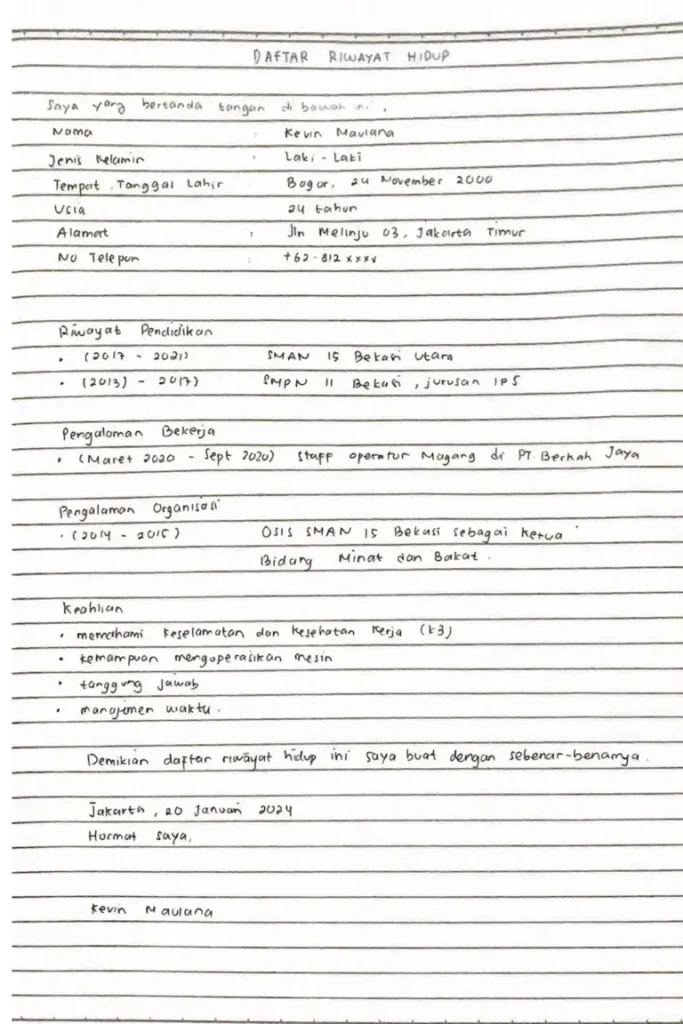 DAFTAR RIWAYAT HIDUP
Saya yang bertanda tangan di bawah ini,
Nama : Kevin Maulana
Jenis Kelamin : Laki - Laki
Tempat, Tanggal Lahir : Bogor, 24 November 2000
Usia 24 tahun
Alamat : Jln Melinjo 03, Jakarta Timur
No Telepon : +62-812 xxxx
Riwayat Pendidikan
• (2017 - 2021) SMAN 15 Bekasi Utara
• (2013) - 2017) SMPN 11 Bekasi, jurusan IPS
Pengalaman Bekerja
• (Maret 2020 - Sept 2020) Staff operator Magang di PT. Berkah Jaya
Pengalaman Organisasi
• (2014 - 2015) OSIS SMAN 15 Bekasi sebagai Ketua
Bidang Minat dan Bakat.
Keahlian
• memahami Keselamatan dan Kesehatan Kerja (K3)
• kemampuan mengoperasikan mesin
• tanggung jawab
• manajemen waktu.
Demikian daftar riwayat hidup ini saya buat dengan sebenar-benarnya.
Jakarta, 20 Januari 2024
Hormat saya,
Kevin Maulana